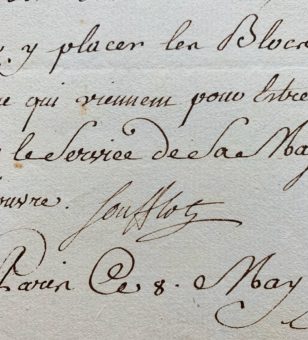 y placer les Blocs
qui viennent pour être
le Service de Sa Ma
ouvre. Soufflot
Paris Ce 8. May